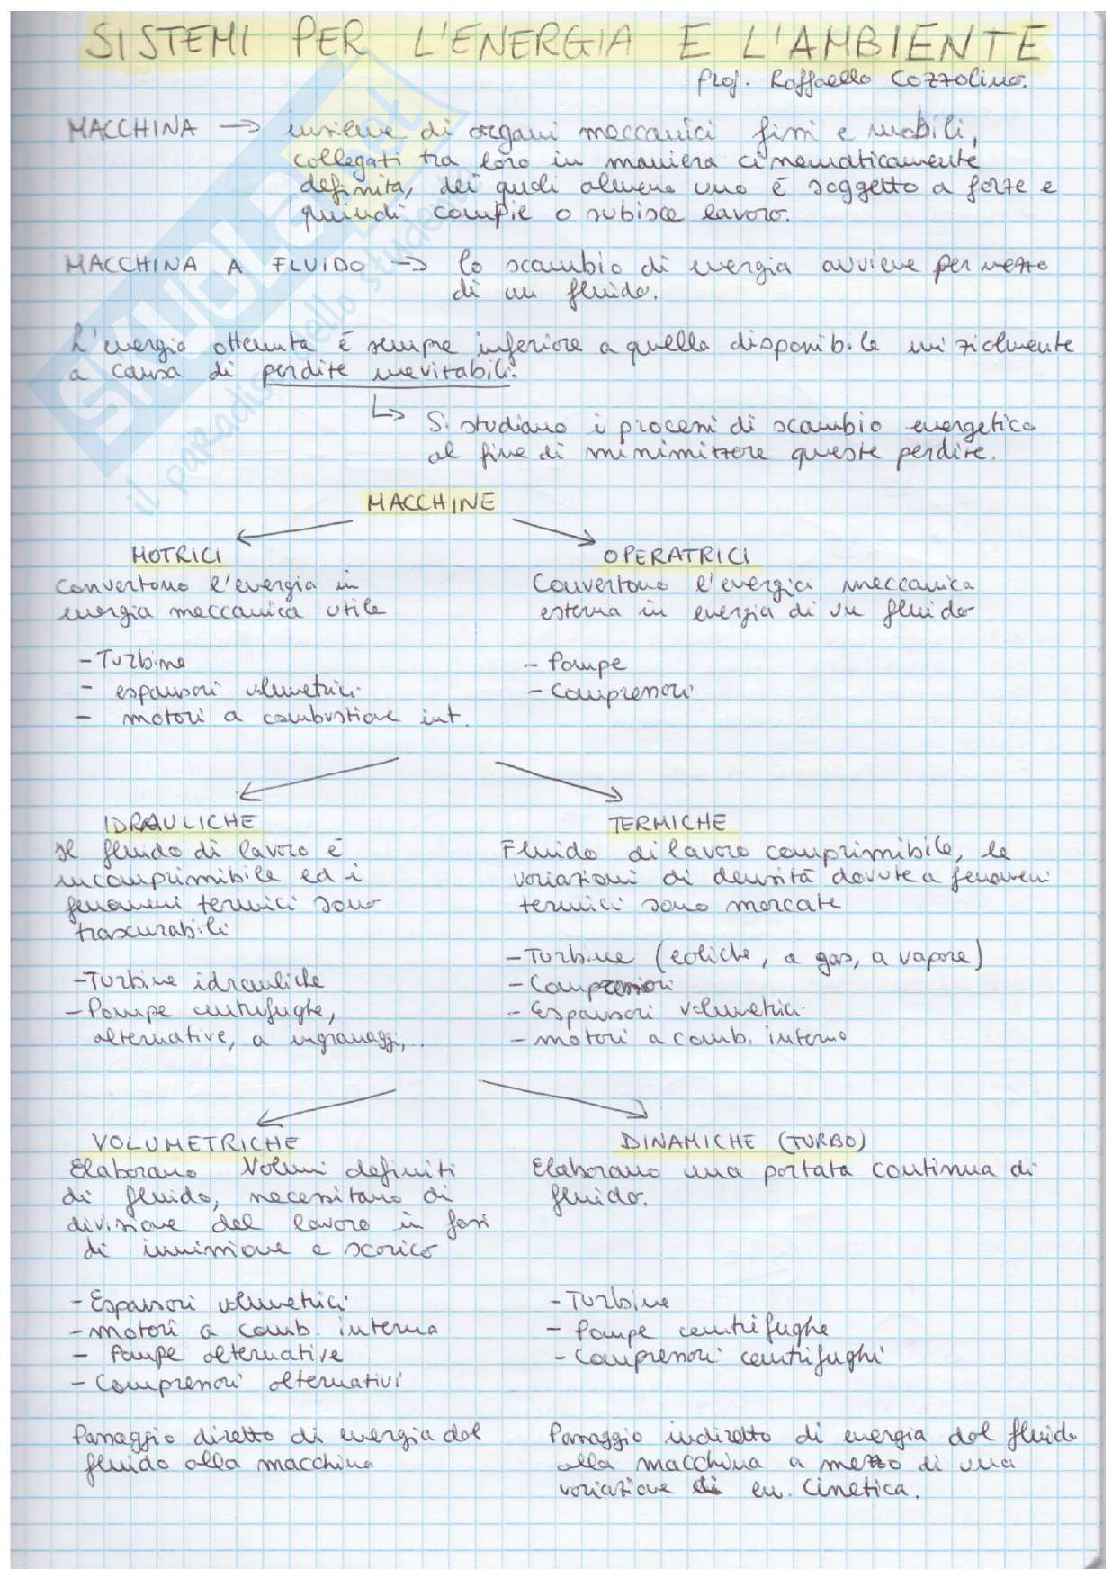 SISTEMI PER L'ENERGIA E L'AMBIENTE
Prof. Raffaello Cozzolino.
MACCHINA → insieme di organi meccanici fissi e mobili,
collegati tra loro in maniera cinematicamente
definita, dei quali almeno uno è soggetto a forze e
quindi compie o subisce lavoro.
MACCHINA A FLUIDO → lo scambio di energia avviene per mezzo
di un fluido.
L'energia ottenuta è sempre inferiore a quella disponibile inizialmente
a causa di perdite inevitabili.
↳ Si studiano i processi di scambio energetico
al fine di minimizzare queste perdite.
MACCHINE
MOTRICI
Convertono l'energia in
energia meccanica utile
- Turbine
- espansori volumetrici
- motori a combustione int.
OPERATRICI
Convertono l'energia meccanica
esterna in energia di un fluido
- Pompe
- Compressori
IDRAULICHE
Il fluido di lavoro è
incomprimibile ed i
fenomeni termici sono
trascurabili
- Turbine idrauliche
- Pompe centrifughe,
alternative, a ingranaggi,..
TERMICHE
Fluido di lavoro comprimibile, le
variazioni di densità dovute a fenomeni
termici sono marcate
- Turbine (eoliche, a gas, a vapore)
- Compressori
- Espansori volumetrici
- motori a comb. interna
VOLUMETRICHE
Elaborano Volumi definiti
di fluido, necessitano di
divisione del lavoro in fasi
di immissione e scarico
- Espansori volumetrici
- motori a comb. interna
- Pompe alternative
- Compressori alternativi
Passaggio diretto di energia dal
fluido alla macchina
DINAMICHE (TURBO)
Elaborano una portata continua di
fluido.
- Turbine
- Pompe centrifughe
- Compressori centrifughi
Passaggio indiretto di energia dal fluido
alla macchina a mezzo di una
variazione di en. cinetica.
SKUOLA.net
il paradiso dello studente